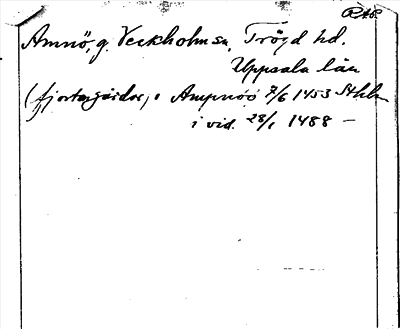 RAp.
Amnö, g. Veckholm sn, Trögd hd.
Uppsala län
(fjortagärdar) i Ampnöö 7/6 1453 Sthlm
i vid. 28/1 1488 —